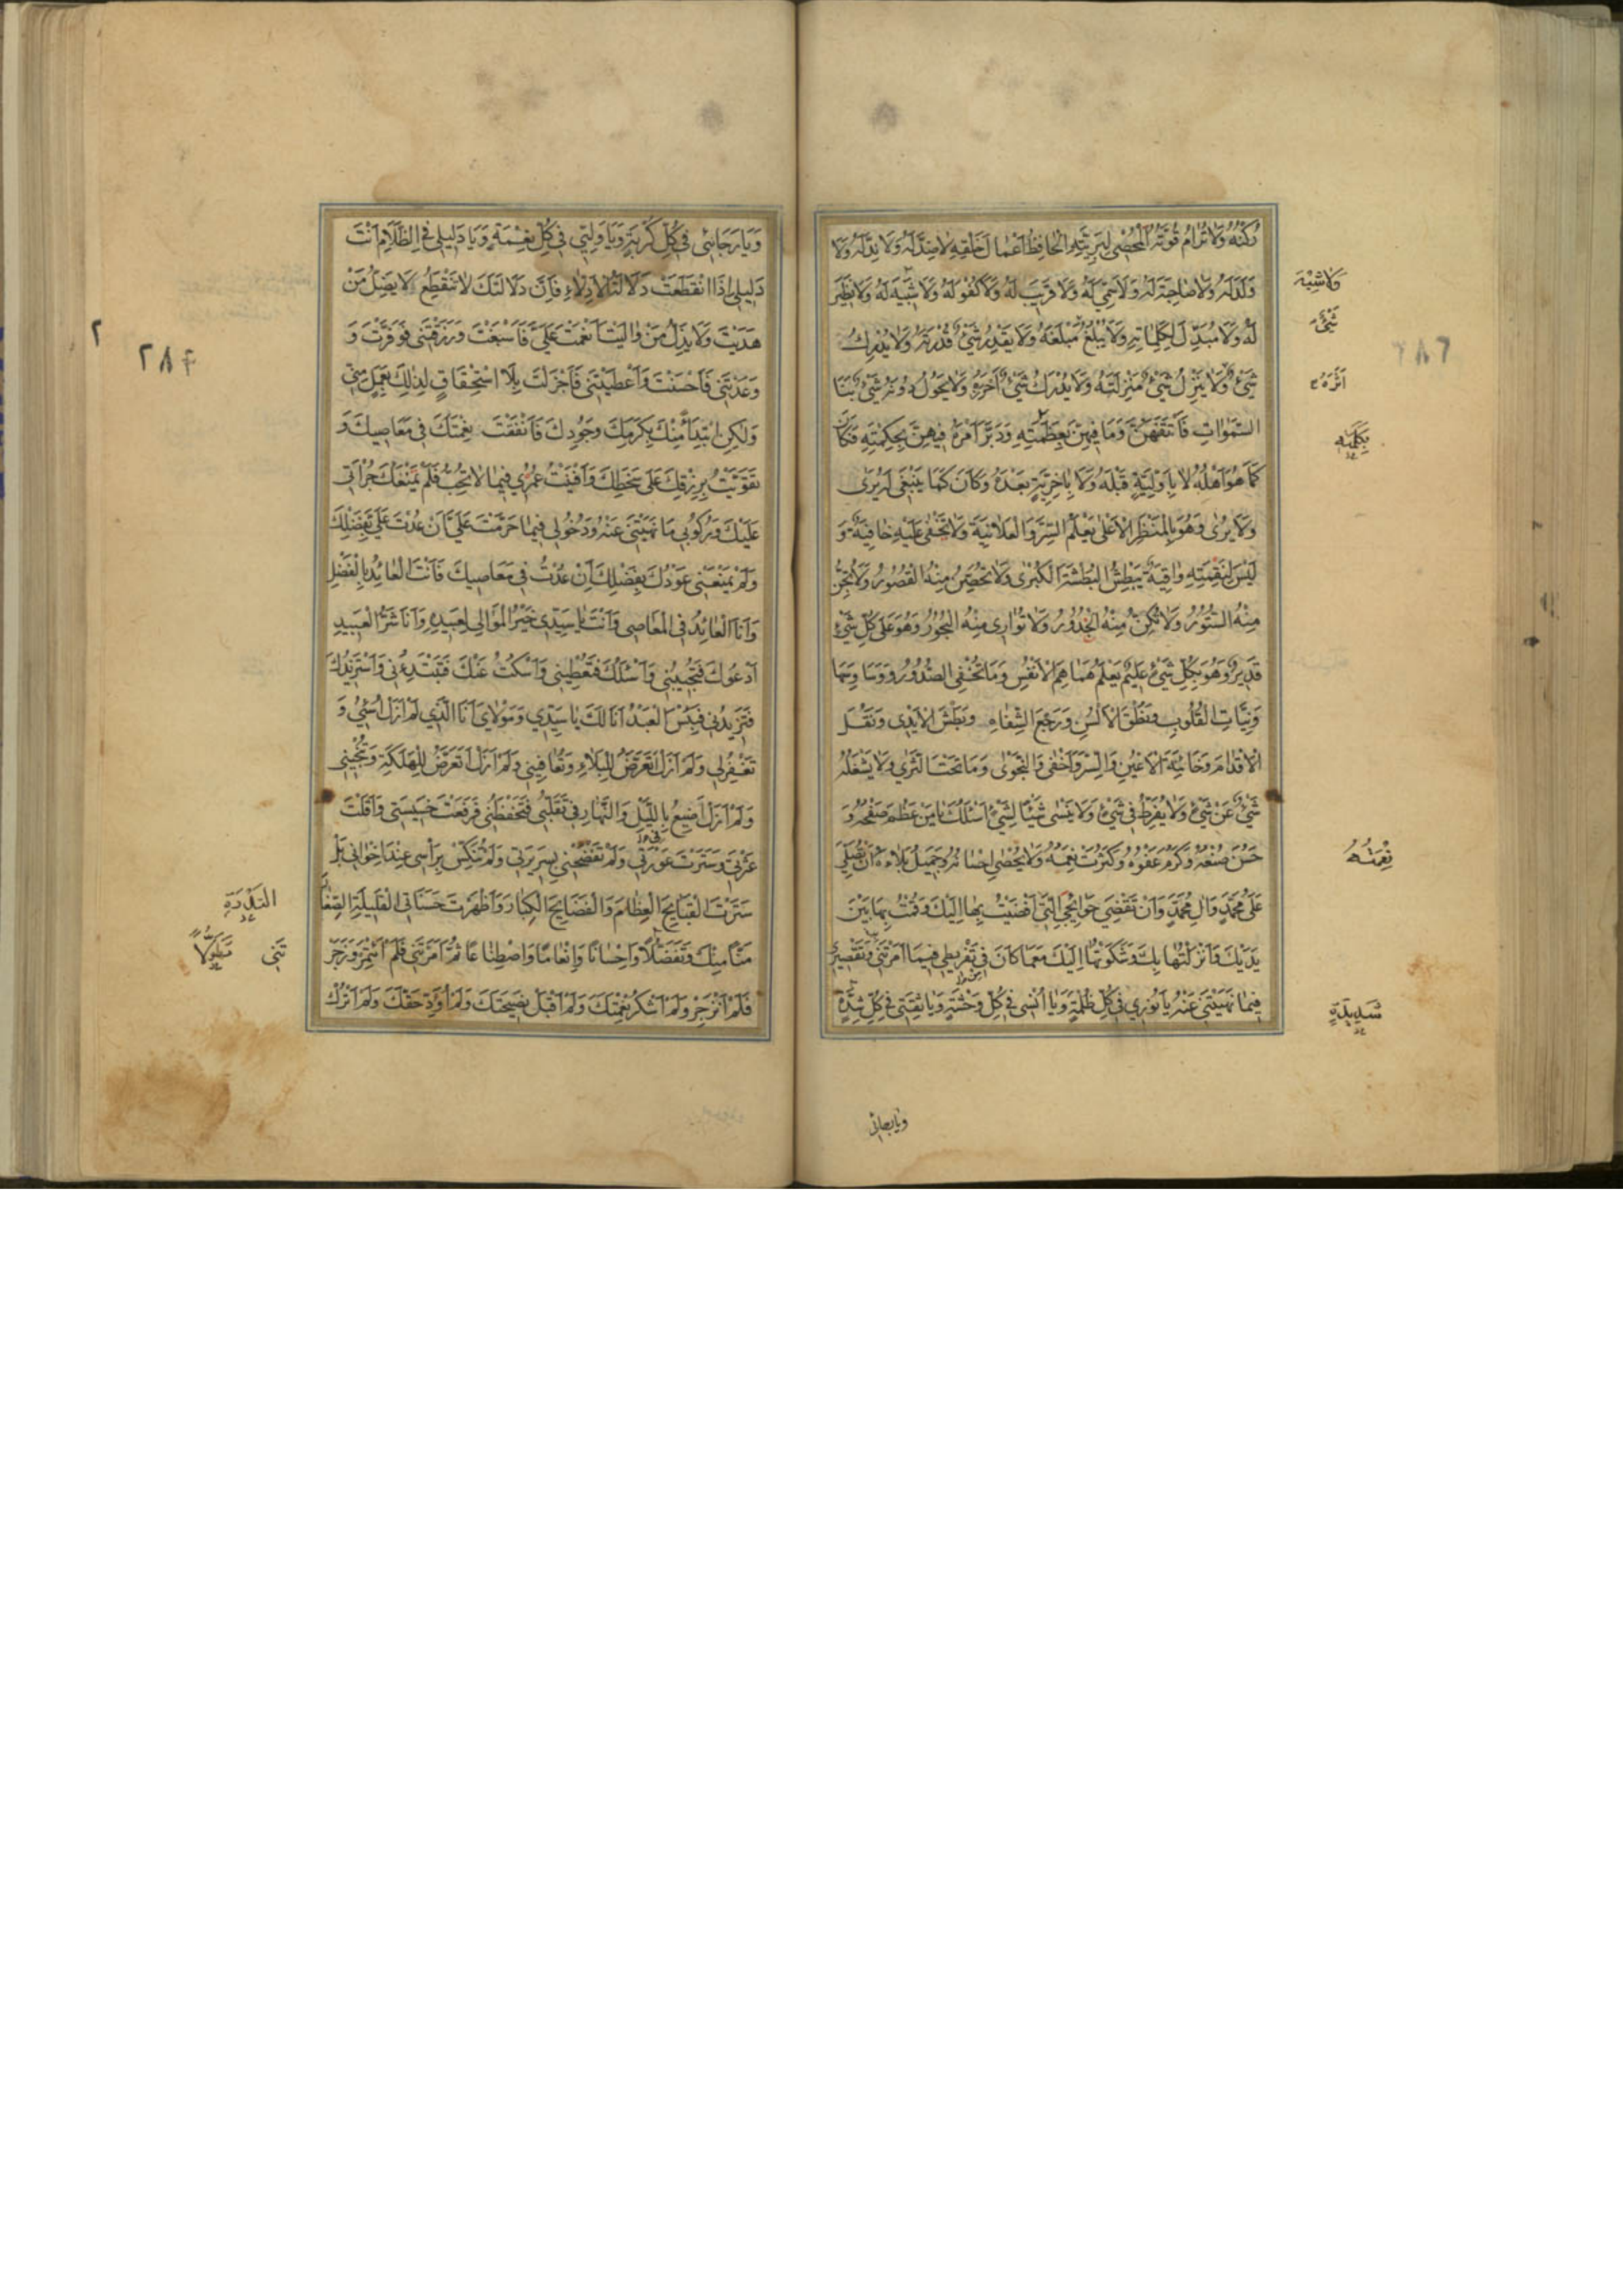 رُكْنُهُ وَلَا تُرَامُ قُوَّتُهُ الْمُحْصِي لِبَرِيَّتِهِ الْحَافِظُ أَعْمَالَ خَلْقِهِ لَا ضِدَّ لَهُ وَلَا نِدَّ لَهُ وَلَا
وَلَدَ لَهُ وَلَا صَاحِبَةَ لَهُ وَلَا سَمِيَّ لَهُ وَلَا قَرِيبَ لَهُ وَلَا كُفْوَ لَهُ وَلَا شَبِيهَ لَهُ وَلَا نَظِيرَ
وَلَا شِبْهَ
لَهُ وَلَا مُبَدِّلَ لِكَلِمَاتِهِ وَلَا يَبْلُغُ مَبْلَغَهُ وَلَا يَقْدِرُ شَيْءٌ قُدْرَتَهُ وَلَا يُدْرِكُ
شَيْءٌ
شَيْءٌ وَلَا يَنْزِلُ شَيْءٌ مَنْزِلَتَهُ وَلَا يُدْرَكُ شَيْءٌ أَحْرَزَهُ وَلَا يَحُولُ دُونَهُ شَيْءٌ بَنَا
أَثَرَهُ
السَّمٰوَاتِ فَأَتْقَنَهُنَّ وَمَا فِيهِنَّ بِعَظَمَتِهِ وَدَبَّرَ أَمْرَهُ فِيهِنَّ بِحِكْمَتِهِ فَكَانَ
كَمَا هُوَ أَهْلُهُ لَا بِأَوَّلِيَّةٍ قَبْلَهُ وَلَا بِآخِرِيَّةٍ بَعْدَهُ وَكَانَ كَمَا يَنْبَغِي لَهُ يَرٰى
وَلَا يُرٰى وَهُوَ بِالْمَنْظَرِ الْأَعْلٰى يَعْلَمُ السِّرَّ وَالْعَلَانِيَةَ وَلَا تَخْفٰى عَلَيْهِ خَافِيَةٌ وَ
لَيْسَ لِنَقِمَتِهِ وَاقِيَةٌ يَبْطِشُ الْبَطْشَةَ الْكُبْرٰى وَلَا تُحَصِّنُ مِنْهُ الْقُصُورُ وَلَا تُجِنُّ
مِنْهُ السُّتُورُ وَلَا تُكِنُّ مِنْهُ الْخُدُورُ وَلَا تُوَارِي مِنْهُ الْبُحُورُ وَهُوَ عَلٰى كُلِّ شَيْءٍ
قَدِيرٌ وَهُوَ بِكُلِّ شَيْءٍ عَلِيمٌ يَعْلَمُ هَمَاهِمَ الْأَنْفُسِ وَمَا تُخْفِي الصُّدُورُ وَوَسَاوِسَهَا
وَنِيَّاتِ الْقُلُوبِ وَنُطْقَ الْأَلْسُنِ وَرَجْعَ الشِّفَاهِ وَبَطْشَ الْأَيْدِي وَنَقْلَ
الْأَقْدَامِ وَخَائِنَةَ الْأَعْيُنِ وَالسِّرَّ وَأَخْفٰى وَالنَّجْوٰى وَمَا تَحْتَ الثَّرٰى وَلَا يَشْغَلُهُ
شَيْءٌ عَنْ شَيْءٍ وَلَا يُفَرِّطُ فِي شَيْءٍ وَلَا يَنْسٰى شَيْئًا لِشَيْءٍ أَسْئَلُكَ يَا مَنْ عَظُمَ صَفْحُهُ وَ
حَسُنَ صُنْعُهُ وَكَرُمَ عَفْوُهُ وَكَثُرَتْ نِعَمُهُ وَلَا يُحْصٰى إِحْسَانُهُ وَجَمِيلُ بَلَائِهِ أَنْ تُصَلِّيَ
نِعْمَتُهُ
عَلٰى مُحَمَّدٍ وَآلِ مُحَمَّدٍ وَأَنْ تَقْضِيَ حَوَائِجِيَ الَّتِي أَفْضَيْتُ بِهَا إِلَيْكَ وَقُمْتُ بِهَا بَيْنَ
يَدَيْكَ وَأَنْزَلْتُهَا بِكَ وَشَكَوْتُهَا إِلَيْكَ مَعَ مَا كَانَ مِنْ تَفْرِيطِي فِيمَا أَمَرْتَنِي وَتَقْصِيرِي
فِيمَا نَهَيْتَنِي عَنْهُ يَا نُورِي فِي كُلِّ ظُلْمَةٍ وَيَا أُنْسِي فِي كُلِّ وَحْشَةٍ وَيَا ثِقَتِي فِي كُلِّ شِدَّةٍ
شَدِيدَةٍ
٢٨٦
وَيَا رَجَائِي فِي كُلِّ كُرْبَةٍ وَيَا وَلِيِّي فِي كُلِّ نِعْمَةٍ وَيَا دَلِيلِي فِي الظَّلَامِ أَنْتَ
دَلِيلِي إِذَا انْقَطَعَتْ دَلَالَةُ الْأَدِلَّاءِ فَإِنَّ دَلَالَتَكَ لَا تَنْقَطِعُ لَا يَضِلُّ مَنْ
هَدَيْتَ وَلَا يَذِلُّ مَنْ وَالَيْتَ أَنْعَمْتَ عَلَيَّ فَأَسْبَغْتَ وَرَزَقْتَنِي فَوَفَّرْتَ وَ
وَعَدْتَنِي فَأَحْسَنْتَ وَأَعْطَيْتَنِي فَأَجْزَلْتَ بِلَا اسْتِحْقَاقٍ لِذٰلِكَ بِعَمَلٍ مِنِّي
وَلٰكِنِ ابْتِدَاءً مِنْكَ بِكَرَمِكَ وَجُودِكَ فَأَنْفَقْتُ نِعْمَتَكَ فِي مَعَاصِيكَ وَ
تَقَوَّيْتُ بِرِزْقِكَ عَلٰى سَخَطِكَ وَأَفْنَيْتُ عُمْرِي فِيمَا لَا تُحِبُّ فَلَمْ تَمْنَعْكَ جُرْأَتِي
عَلَيْكَ وَرُكُوبِي مَا نَهَيْتَنِي عَنْهُ وَدُخُولِي فِيمَا حَرَّمْتَ عَلَيَّ أَنْ عُدْتَ عَلَيَّ بِفَضْلِكَ
وَلَمْ يَمْنَعْنِي عَوْدُكَ بِفَضْلِكَ أَنْ عُدْتُ فِي مَعَاصِيكَ فَأَنْتَ الْعَائِدُ بِالْفَضْلِ
وَأَنَا الْعَائِدُ فِي الْمَعَاصِي وَأَنْتَ يَا سَيِّدِي خَيْرُ الْمَوَالِي لِعَبِيدِهِ وَأَنَا شَرُّ الْعَبِيدِ
أَدْعُوكَ فَتُجِيبُنِي وَأَسْئَلُكَ فَتُعْطِينِي وَأَسْكُتُ عَنْكَ فَتَبْتَدِئُنِي وَأَسْتَزِيدُكَ
فَتَزِيدُنِي فَبِئْسَ الْعَبْدُ أَنَا لَكَ يَا سَيِّدِي وَمَوْلَايَ أَنَا الَّذِي لَمْ أَزَلْ أُسِيءُ وَ
تَغْفِرُ لِي وَلَمْ أَزَلْ أَتَعَرَّضُ لِلْبَلَاءِ وَتُعَافِينِي وَلَمْ أَزَلْ أَتَعَرَّضُ لِلْهَلَكَةِ وَتُنْجِينِي
وَلَمْ أَزَلْ أُضِيعُ بِاللَّيْلِ وَالنَّهَارِ فِي تَقَلُّبِي فَتَحْفَظُنِي فَرَفَعْتَ خَسِيسَتِي وَأَقَلْتَ
عَثْرَتِي وَسَتَرْتَ عَوْرَتِي وَلَمْ تَفْضَحْنِي بِسَرِيرَتِي وَلَمْ تُنَكِّسْ بِرَأْسِي عِنْدَ إِخْوَانِي بَلْ
سَتَرْتَ الْقَبَايِحَ الْعِظَامَ وَالْفَضَايِحَ الْكِبَارَ وَأَظْهَرْتَ حَسَنَاتِيَ الْقَلِيلَةَ الصِّغَارَ
مَنًّا مِنْكَ وَتَفَضُّلًا وَإِحْسَانًا وَإِنْعَامًا وَاصْطِنَاعًا ثُمَّ أَمَرْتَنِي فَلَمْ أَئْتَمِرْ وَزَجَرْ
تَنِي
فَلَمْ أَنْزَجِرْ وَلَمْ أَشْكُرْ نِعْمَتَكَ وَلَمْ أَقْبَلْ نَصِيحَتَكَ وَلَمْ أُؤَدِّ حَقَّكَ وَلَمْ أَتْرُكْ
٢٨٧